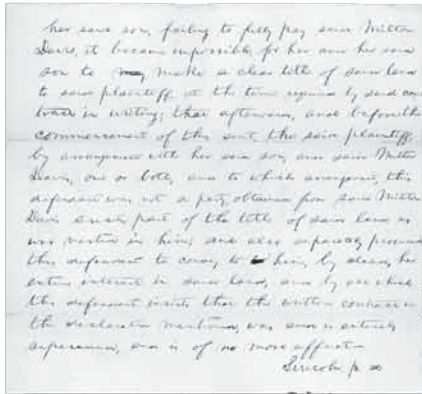 her said son, failing to fully pay said Milton
Davis, it became impossible for her and her said
son to make a clear title of said land
to said plaintiff, at the time required by said con
tract in writing; that afterwards, and before the
commencement of this suit, the said plaintiff,
by arrangement with her said son, and said Milton
Davis, one or both, and to which arrangement, this
defendant was not a party, obtained from said Milton
Davis such part of the title of said land as
was vested in him; and also separately procured
this defendant to convey to him, by deed, her
entire interest in said land, and by all which
this defendant insists that the written contract in
the declaration mentioned, was and is entirely
superseded, and is of no more effect—
Lincoln p. d